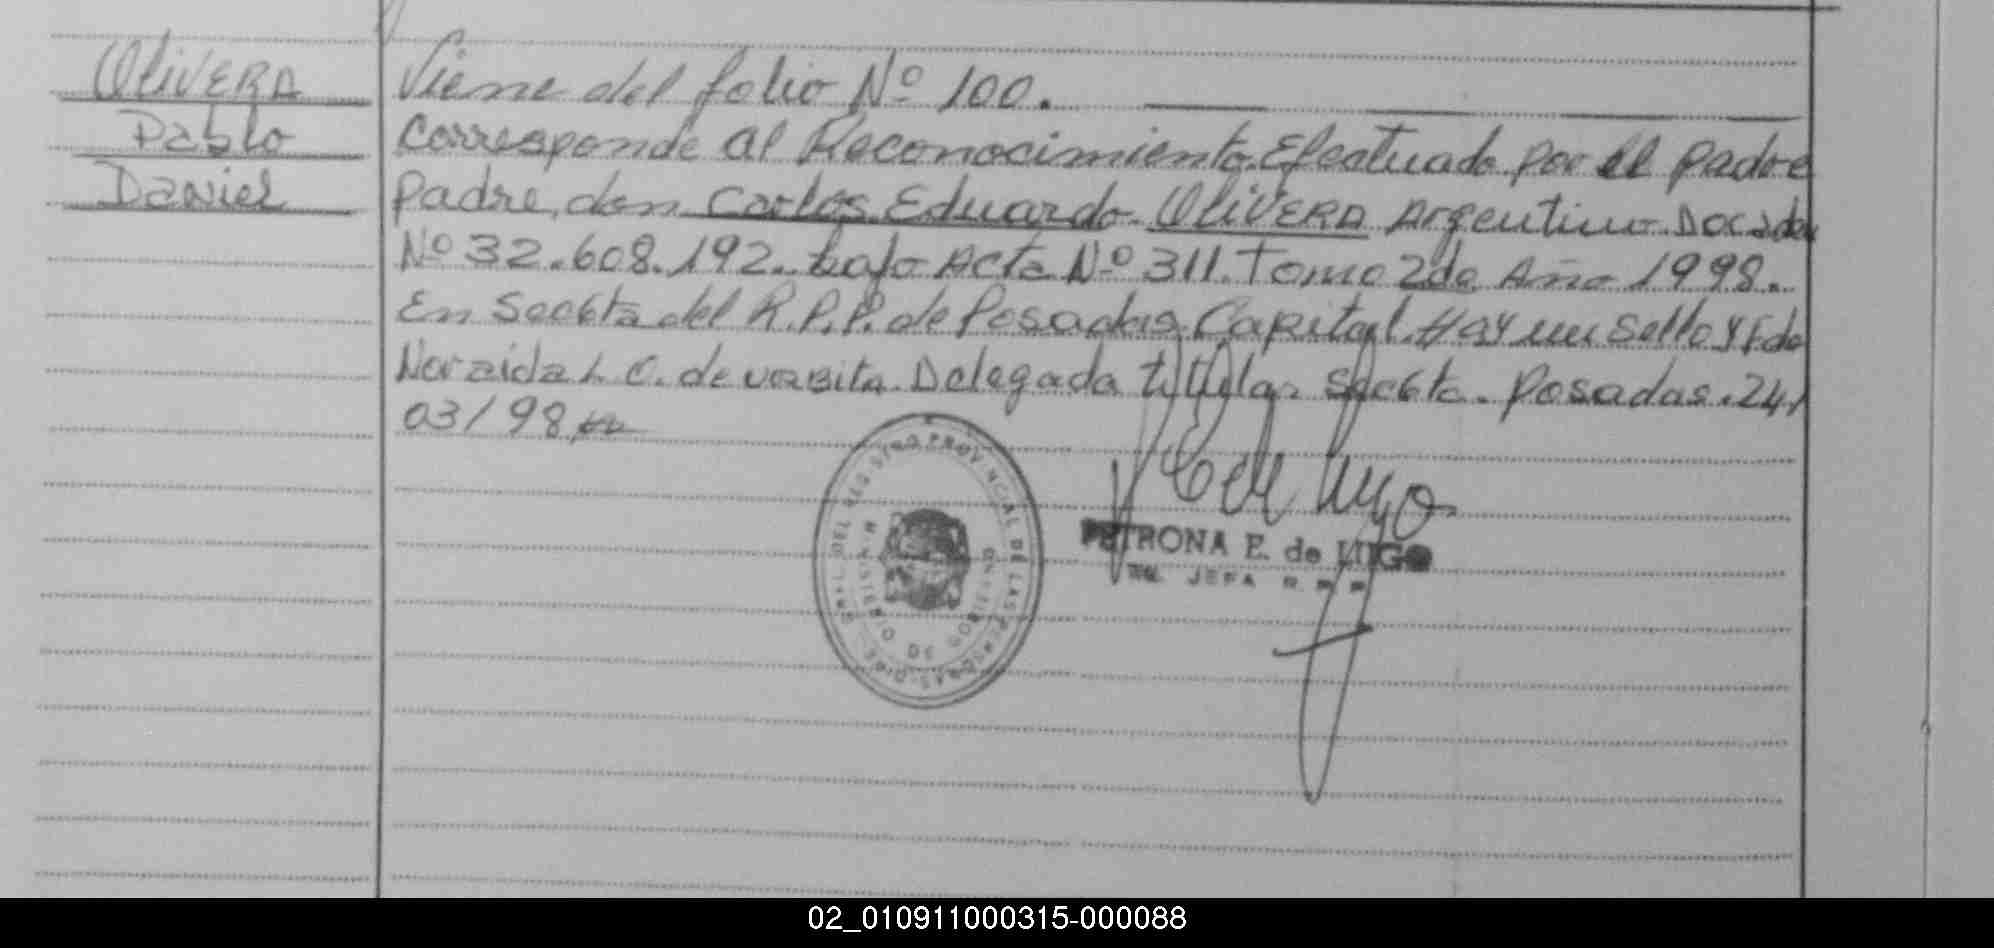 OLIVERA
Pablo
Daniel
Viene del folio Nº 100.
Corresponde al Reconocimiento Efectuado por el padre
padre, don Carlos Eduardo OLIVERA Argentino
Nº 32.608.192. bajo Acta Nº 311. Tomo 2do Año 1998.
En Sec6ta del R.P.P. de Posadas Capital. Hay un Sello y Fdo
Noraida L. C. de Delegada titular Sec6ta. Posadas. 24/
03/98
DEL REGISTRO PROVINCIAL DE LAS PERSONAS
MINISTERIO DE GOBIERNO
PETRONA E. de LUGO
JEFA R.
02_010911000315-000088